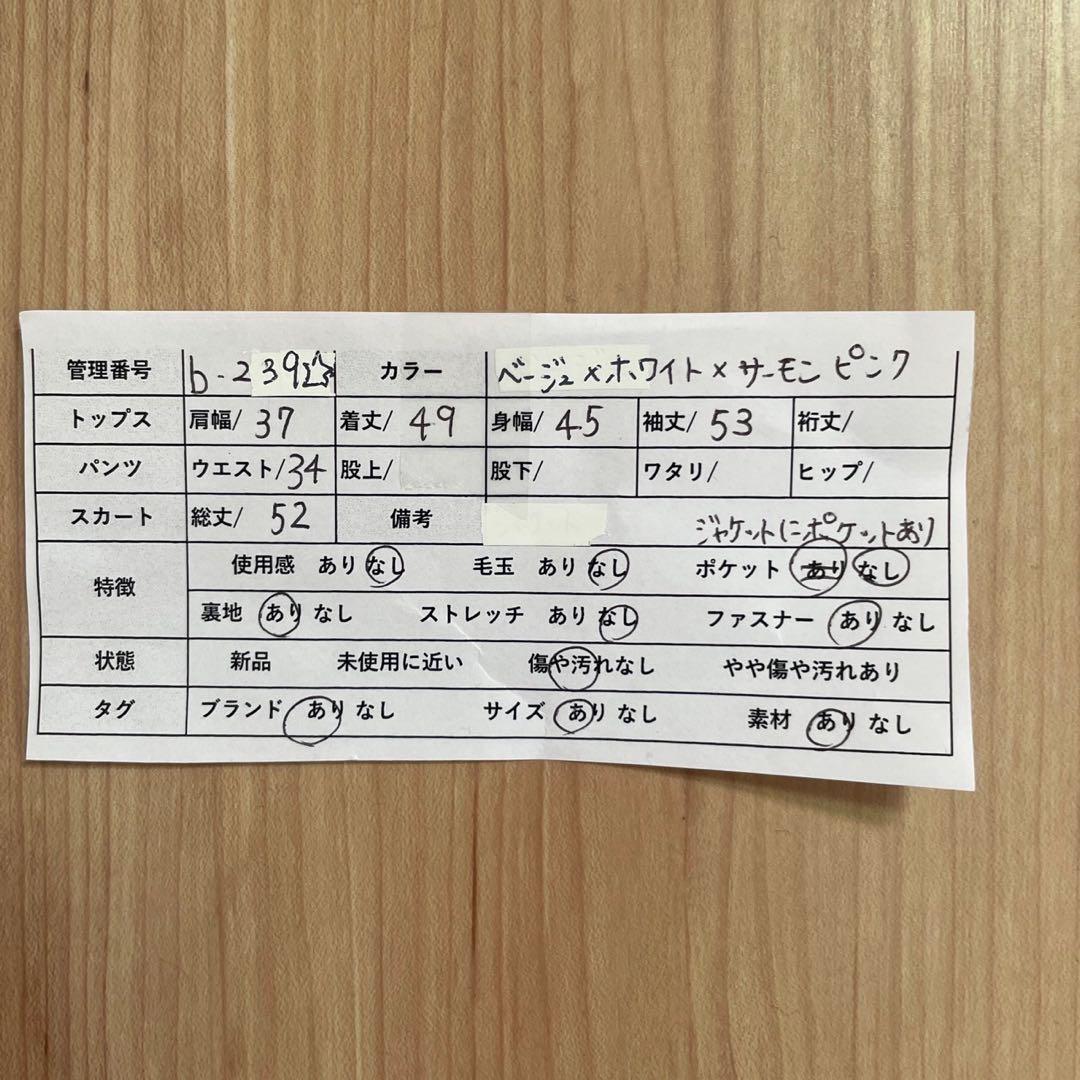 管理番号 b-239☆ カラー ベージュ×ホワイト×サーモンピンク
トップス 肩幅/ 37 着丈/ 49 身幅/ 45 袖丈/ 53 裄丈/
パンツ ウエスト/34 股上/ 股下/ ワタリ/ ヒップ/
スカート 総丈/ 52 備考 ジャケットにポケットあり
特徴 使用感 あり なし 毛玉 あり なし ポケット あり なし
裏地 あり なし ストレッチ あり なし ファスナー あり なし
状態 新品 未使用に近い 傷や汚れなし やや傷や汚れあり
タグ ブランド あり なし サイズ あり なし 素材 あり なし